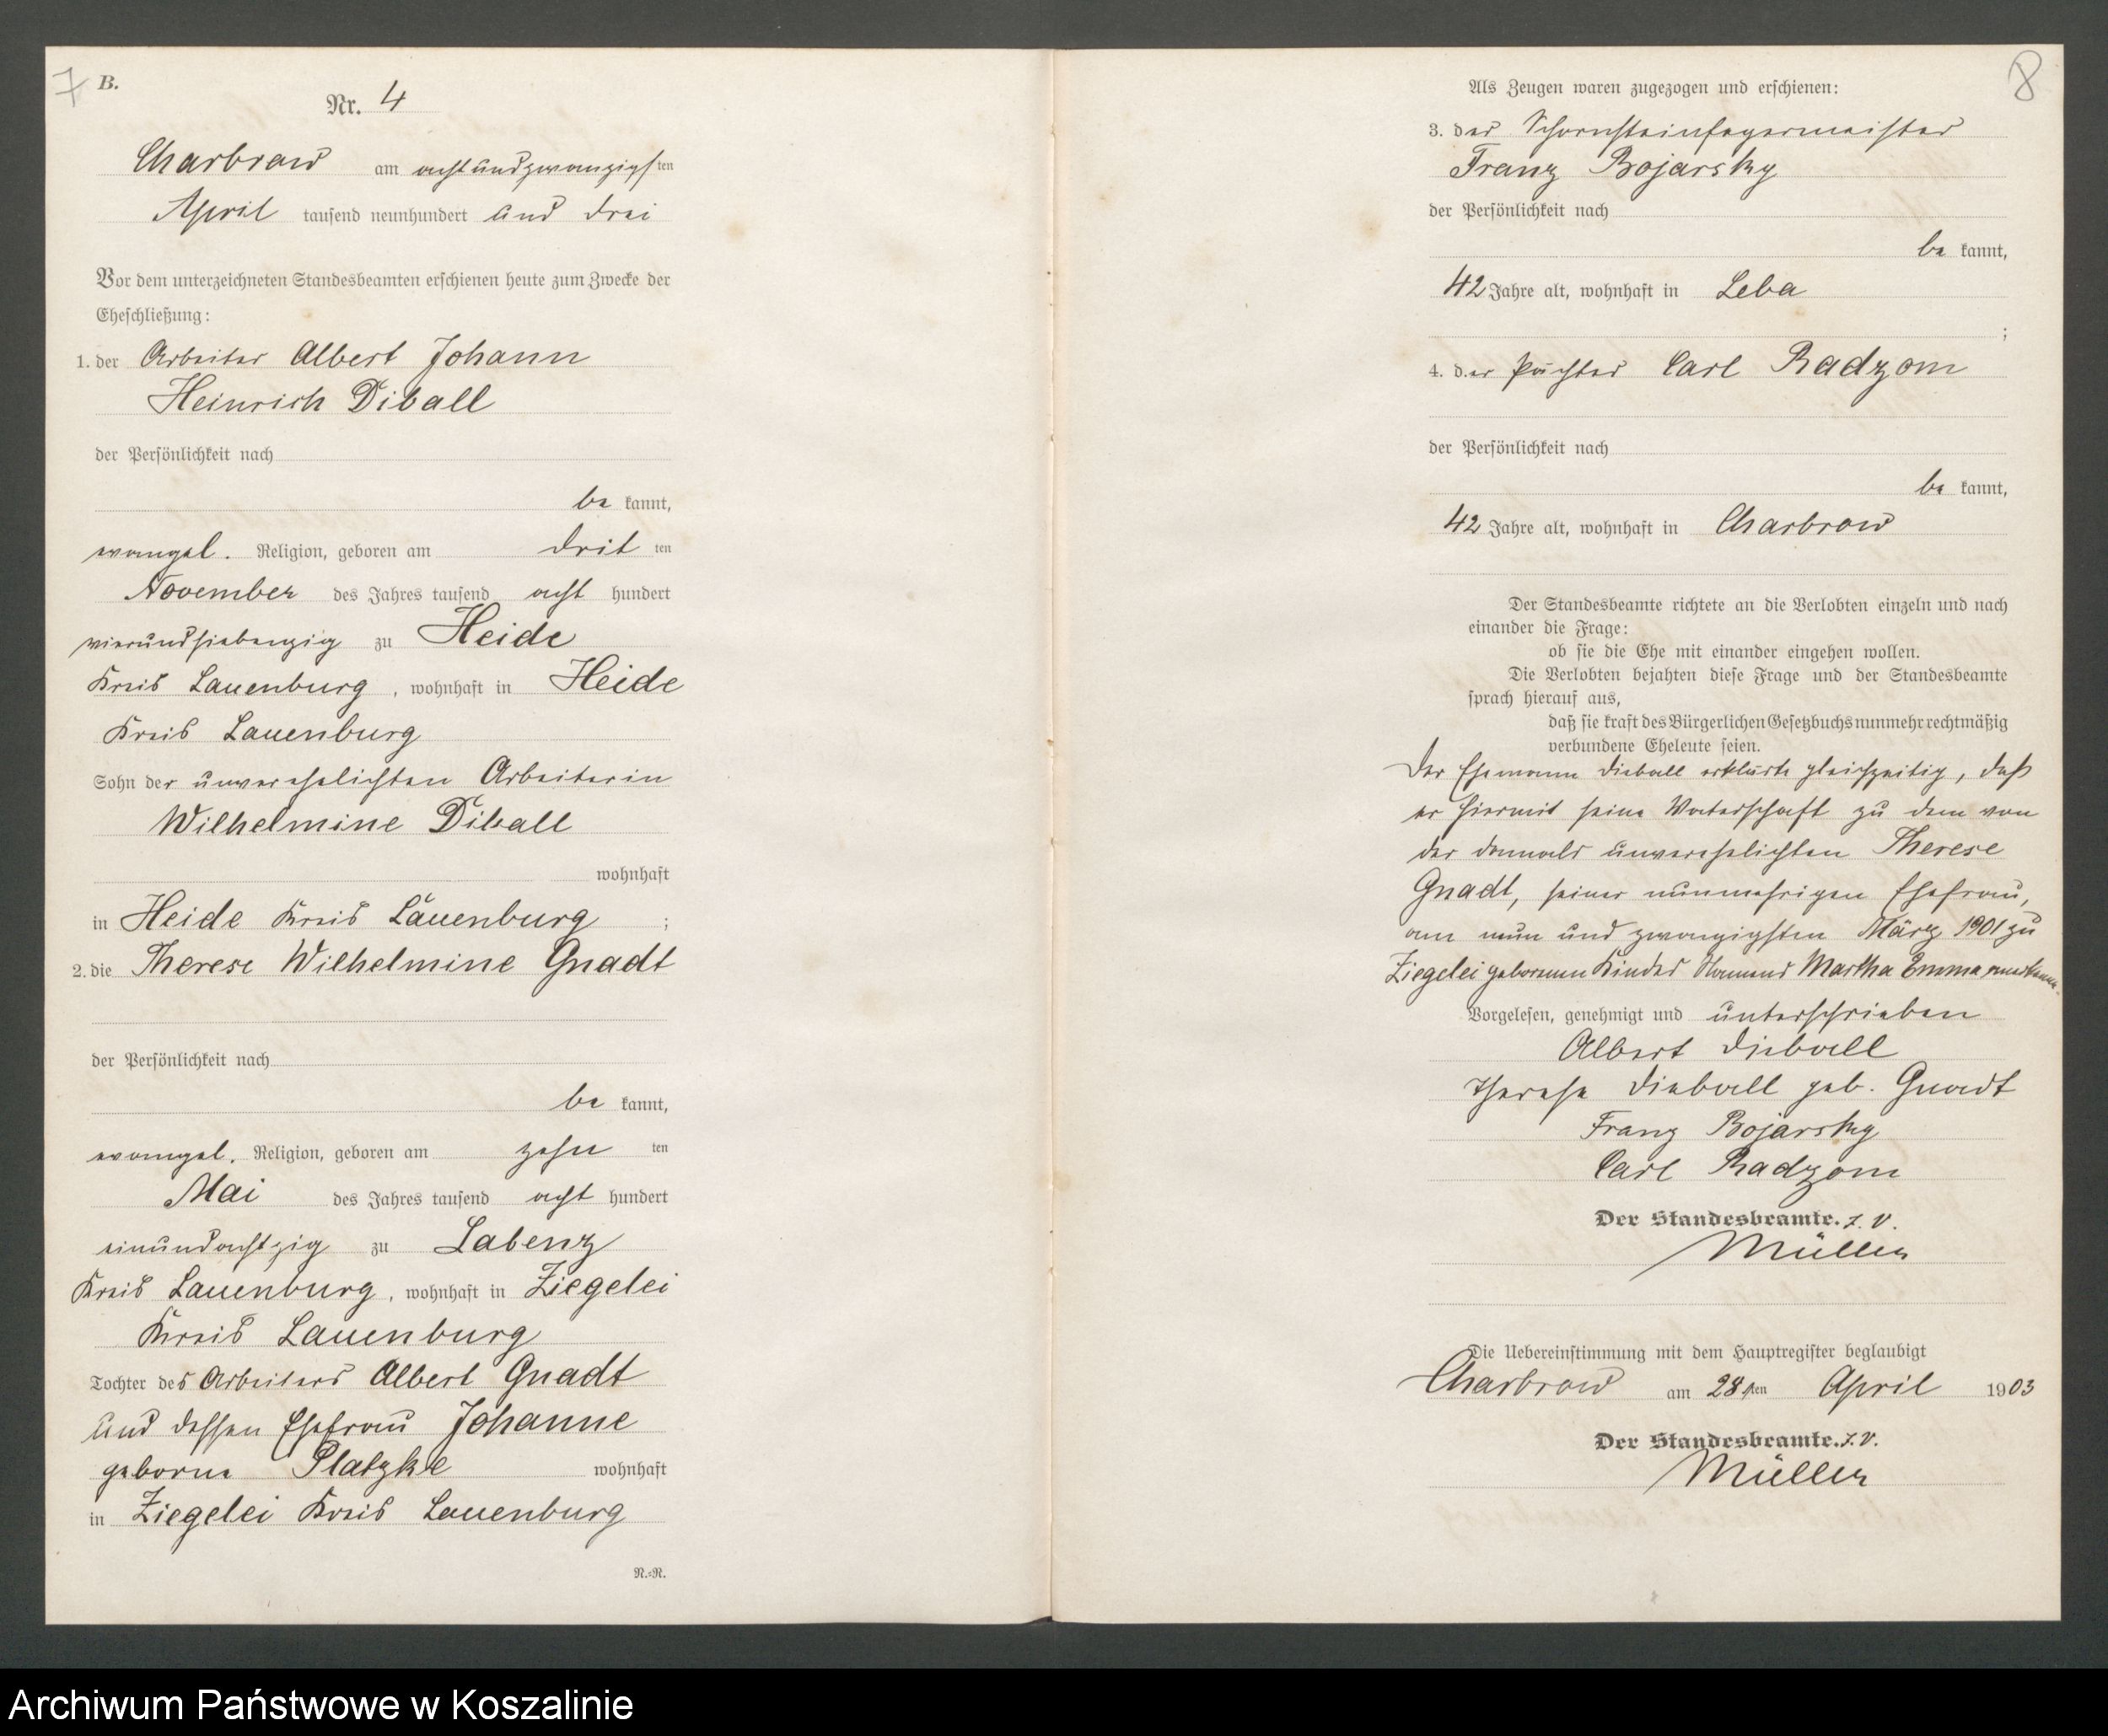 7
B.
Nr. 4
Charbrow am achtundzwanzigsten
April tausend neunhundert und drei
Vor dem unterzeichneten Standesbeamten erschienen heute zum Zwecke der
Eheschließung:
1. der Arbeiter Albert Johann
Heinrich Diball
der Persönlichkeit nach
be kannt,
evangel. Religion, geboren am dritten
November des Jahres tausend acht hundert
vierundsiebenzig zu Heide
Kreis Lauenburg, wohnhaft in Heide
Kreis Lauenburg
Sohn der unverehelichten Arbeiterin
Wilhelmine Diball
wohnhaft
in Heide Kreis Lauenburg ;
2. die Therese Wilhelmine Gnadt
der Persönlichkeit nach
be kannt,
evangel. Religion, geboren am zehn ten
Mai des Jahres tausend acht hundert
einundachtzig zu Labenz
Kreis Lauenburg, wohnhaft in Ziegelei
Kreis Lauenburg
Tochter des Arbeiters Albert Gnadt
und dessen Ehefrau Johanne
geborne Platzke wohnhaft
in Ziegelei Kreis Lauenburg
N.=N.
8
Als Zeugen waren zugezogen und erschienen:
3. der Schornsteinfegermeister
Franz Bojarsky
der Persönlichkeit nach
be kannt,
42 Jahre alt, wohnhaft in Leba
;
4. der Pächter Carl Radzom
der Persönlichkeit nach
be kannt,
42 Jahre alt, wohnhaft in Charbrow
Der Standesbeamte richtete an die Verlobten einzeln und nach
einander die Frage:
ob sie die Ehe mit einander eingehen wollen.
Die Verlobten bejahten diese Frage und der Standesbeamte
sprach hierauf aus,
daß sie kraft des Bürgerlichen Gesetzbuchs nunmehr rechtmäßig
verbundene Eheleute seien.
Der Ehemann Dieball erklärte gleichzeitig, daß
er hiermit seine Vaterschaft zu dem von
der damals unverehelichten Therese
Gnadt, seiner nunmehrigen Ehefrau,
am neun und zwanzigsten März 1901 zu
Ziegelei geborenen Kindes Namens Martha Emma anerkenne.
Vorgelesen, genehmigt und unterschrieben
Albert Dieball
Therese Dieball geb. Gnadt
Franz Bojarsky
Carl Radzom
Der Standesbeamte. I. V.
Müller
Die Uebereinstimmung mit dem Hauptregister beglaubigt
Charbrow am 28 ten April 1903
Der Standesbeamte. I. V.
Müller
Archiwum Państwowe w Koszalinie